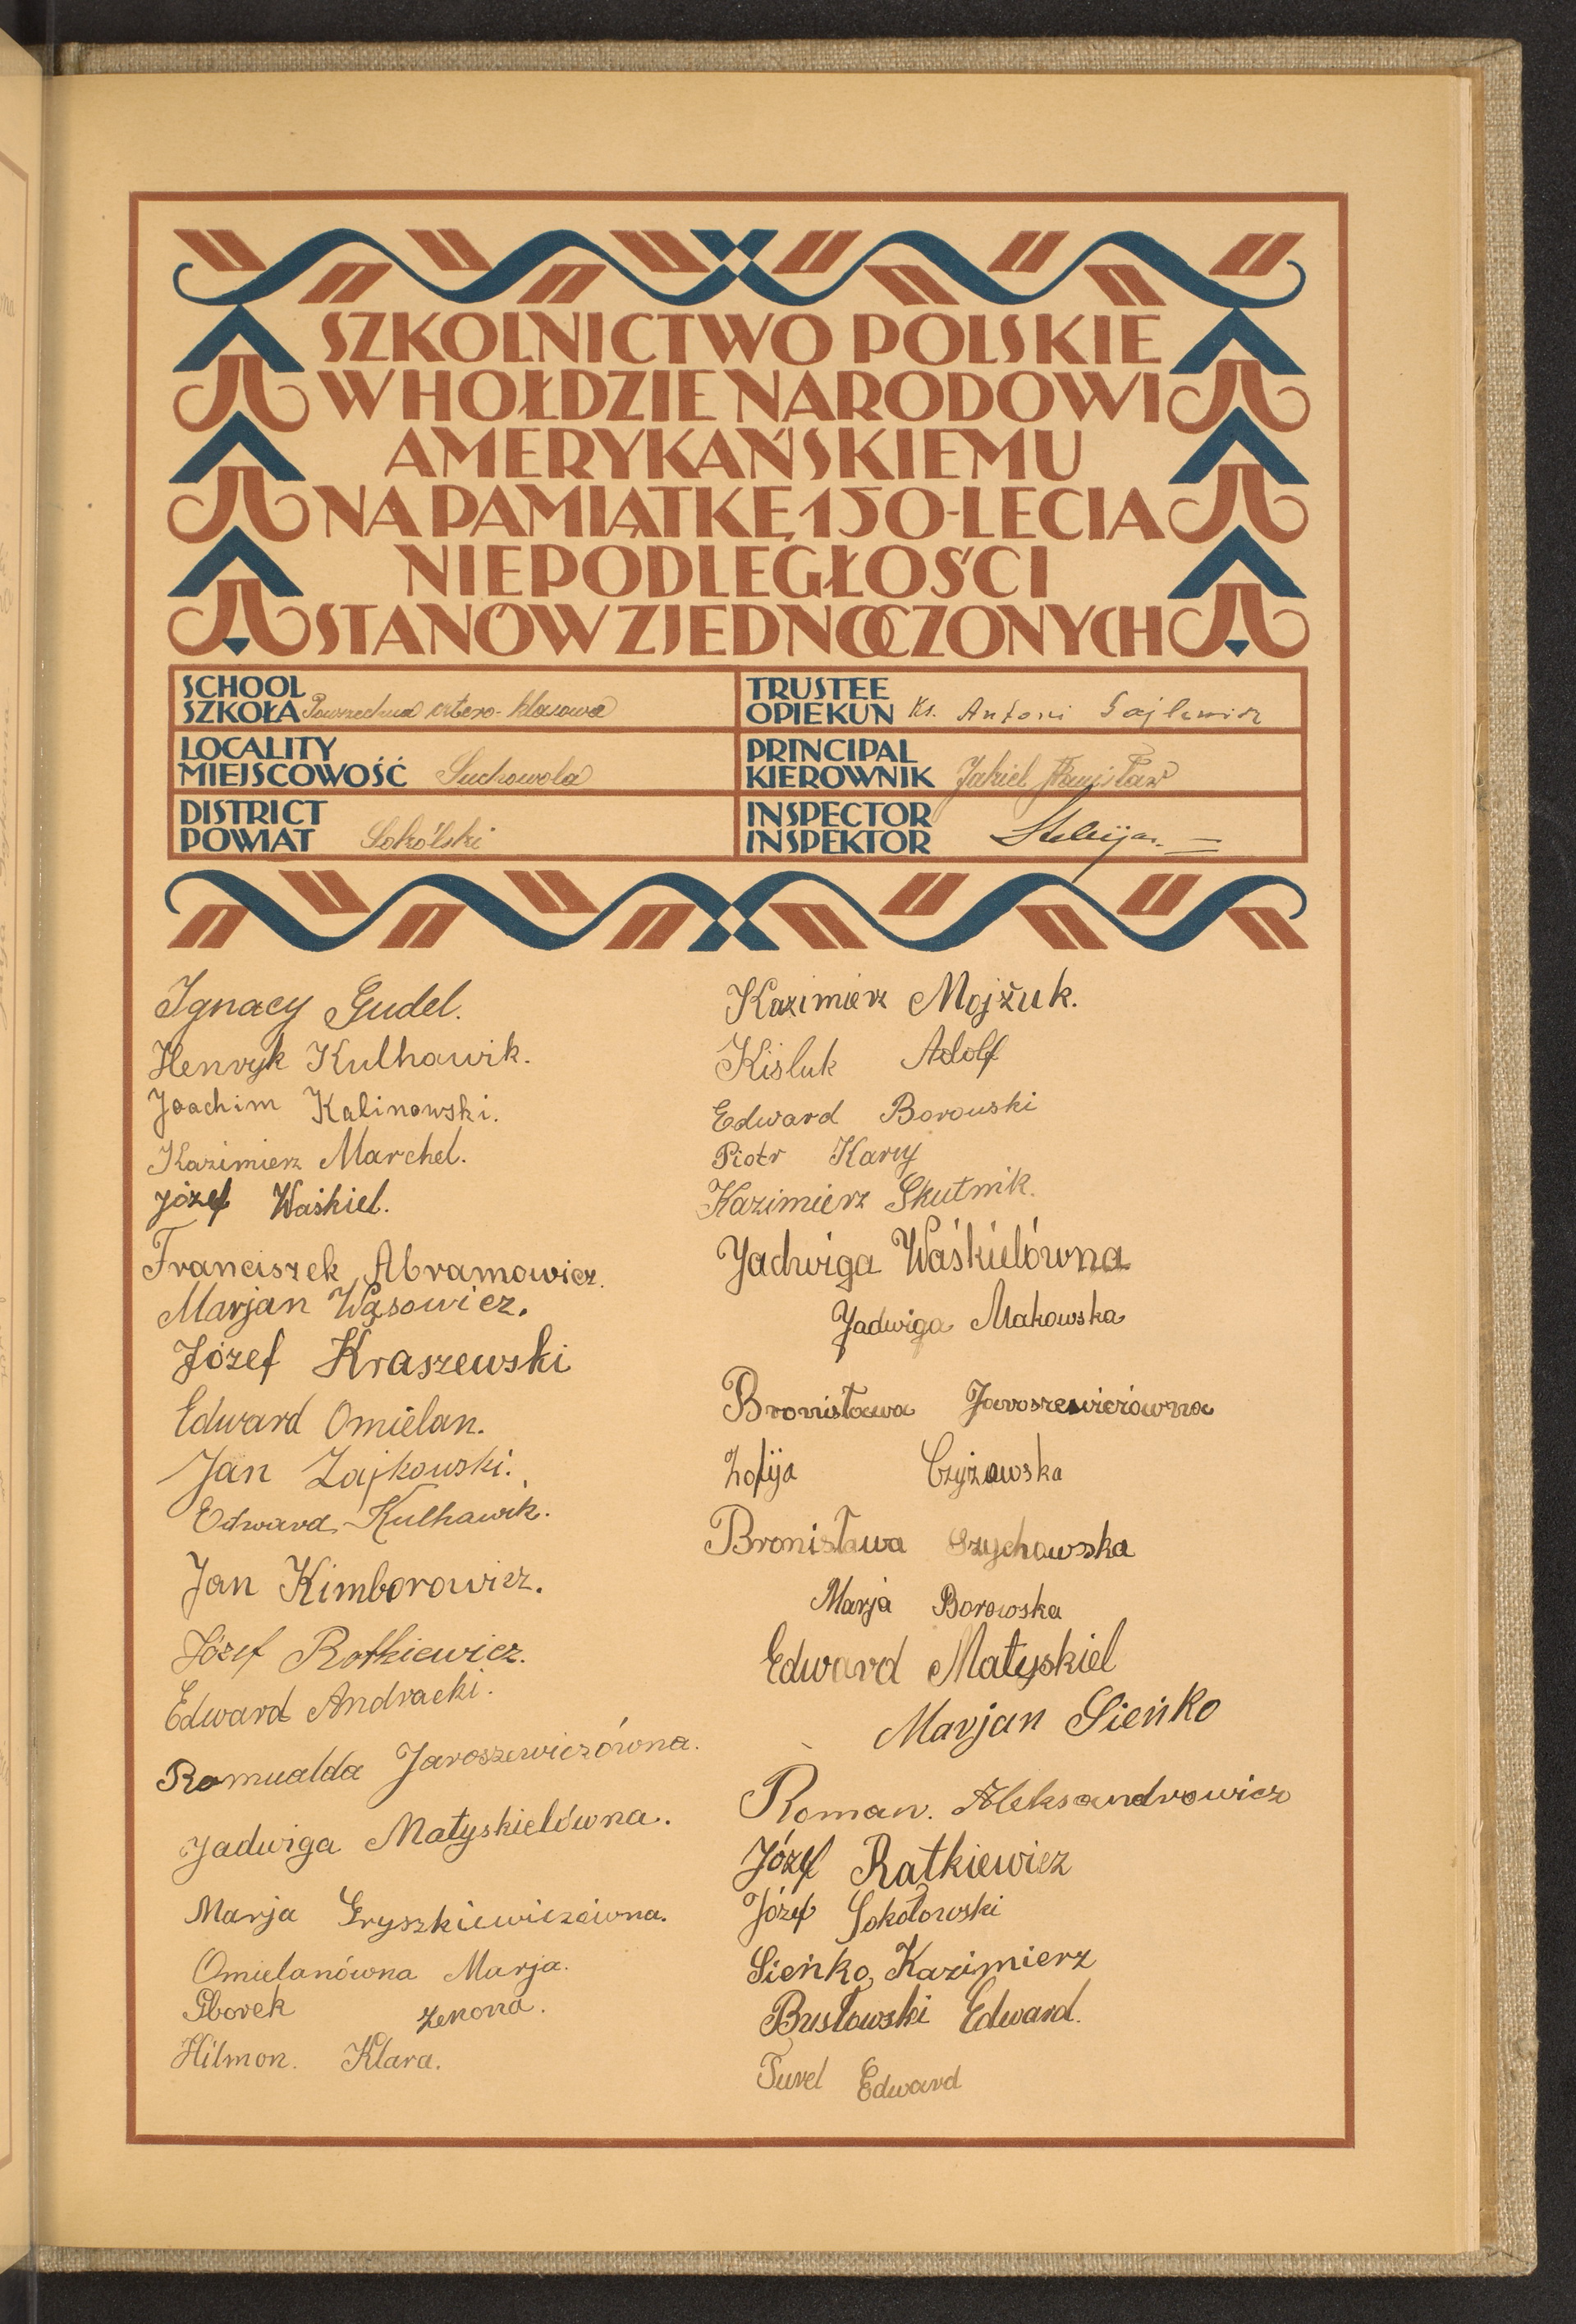 SZKOLNICTWO POLSKIE
W HOŁDZIE NARODOWI
AMERYKAŃSKIEMU
NA PAMIĄTKĘ 150-LECIA
NIEPODLEGŁOŚCI
STANÓW ZJEDNOCZONYCH
SCHOOL
SZKOŁA Powszechna cztero-klasowa
LOCALITY
MIEJSCOWOŚĆ Suchowola
DISTRICT
POWIAT Sokólski
TRUSTEE
OPIEKUN Ks. Antoni
PRINCIPAL
KIEROWNIK Jakiel Stanisław
INSPECTOR
INSPEKTOR
Ignacy Gudel.
Henryk Kulhawik.
Joachim Kalinowski.
Kazimierz Marchel.
Józef Waśkiel.
Franciszek Abramowicz.
Marjan Wąsowicz.
Józef Kraszewski
Edward Omielan.
Jan Zajkowski.
Edward Kulhawik.
Jan Kimborowicz.
Józef Rotkiewicz.
Edward Andracki.
Romualda Jaroszewiczówna.
Jadwiga Matyskielówna.
Marja Gryszkiewiczówna.
Omielanówna Marja.
Zenona.
Hilmon. Klara.
Kazimierz Mojżuk.
Kisluk Adolf
Edward Borowski
Piotr Kary
Kazimierz Skutnik.
Jadwiga Waśkielówna
Jadwiga Makowska
Bronisława Jaroszewiczówna
Zofija Czyżowska
Bronisława
Marja Borowska
Edward Matyskiel
Marjan Sieńko
Roman. Aleksandrowicz
Józef Ratkiewicz
Józef Sokołowski
Sieńko, Kazimierz
Busłowski Edward.
Turel Edward